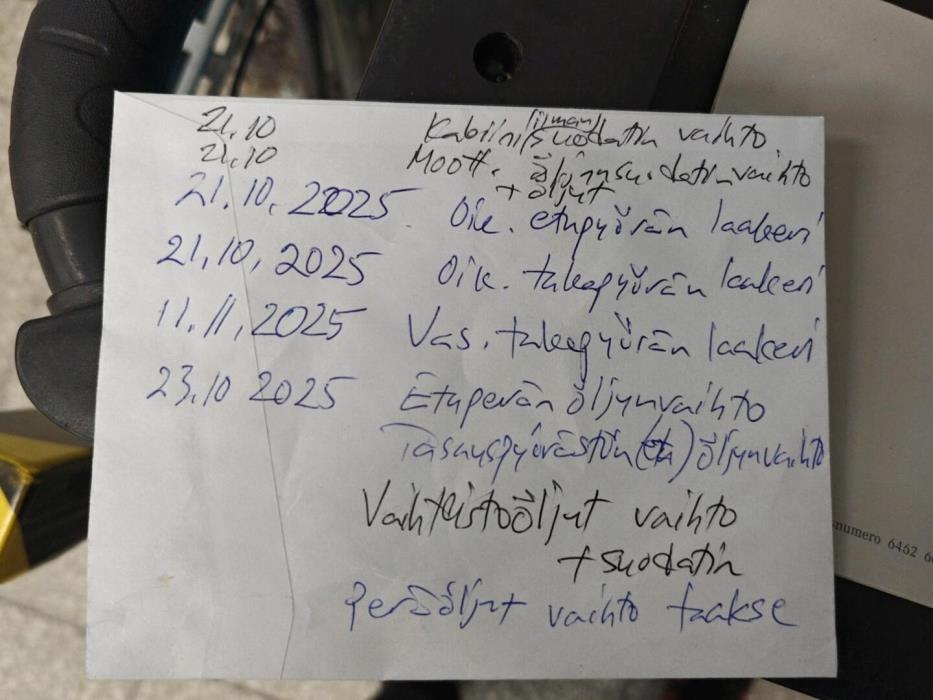 21.10 Kabiini(ilman)suodatin vaihto.
21.10 Moott. öljynsuodatin vaihto
+ öljyt
21.10.2025 Oik. etupyörän laakeri
21.10.2025 Oik. takapyörän laakeri
11.11.2025 Vas. takapyörän laakeri
23.10 2025 Etuperän öljynvaihto
Tasauspyörästön (etu) öljynvaihto
Vaihteistoöljyt vaihto
+ suodatin
Peräöljyt vaihto taakse
numero 6462